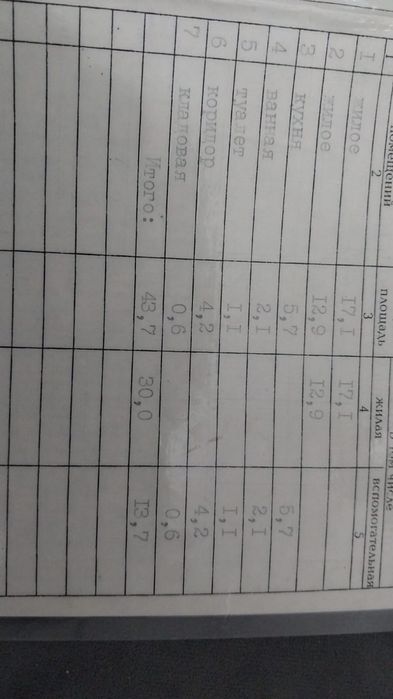 помещений площадь В том числе
жилая вспомогательная
1 2 3 4 5
I жилое 17,I 17,I
2 жилое I2,9 I2,9
3 кухня 5,7 5,7
4 ванная 2,I 2,I
5 туалет I,I I,I
6 коридор 4,2 4,2
7 кладовая 0,6 0,6
Итого: 43,7 30,0 I3,7